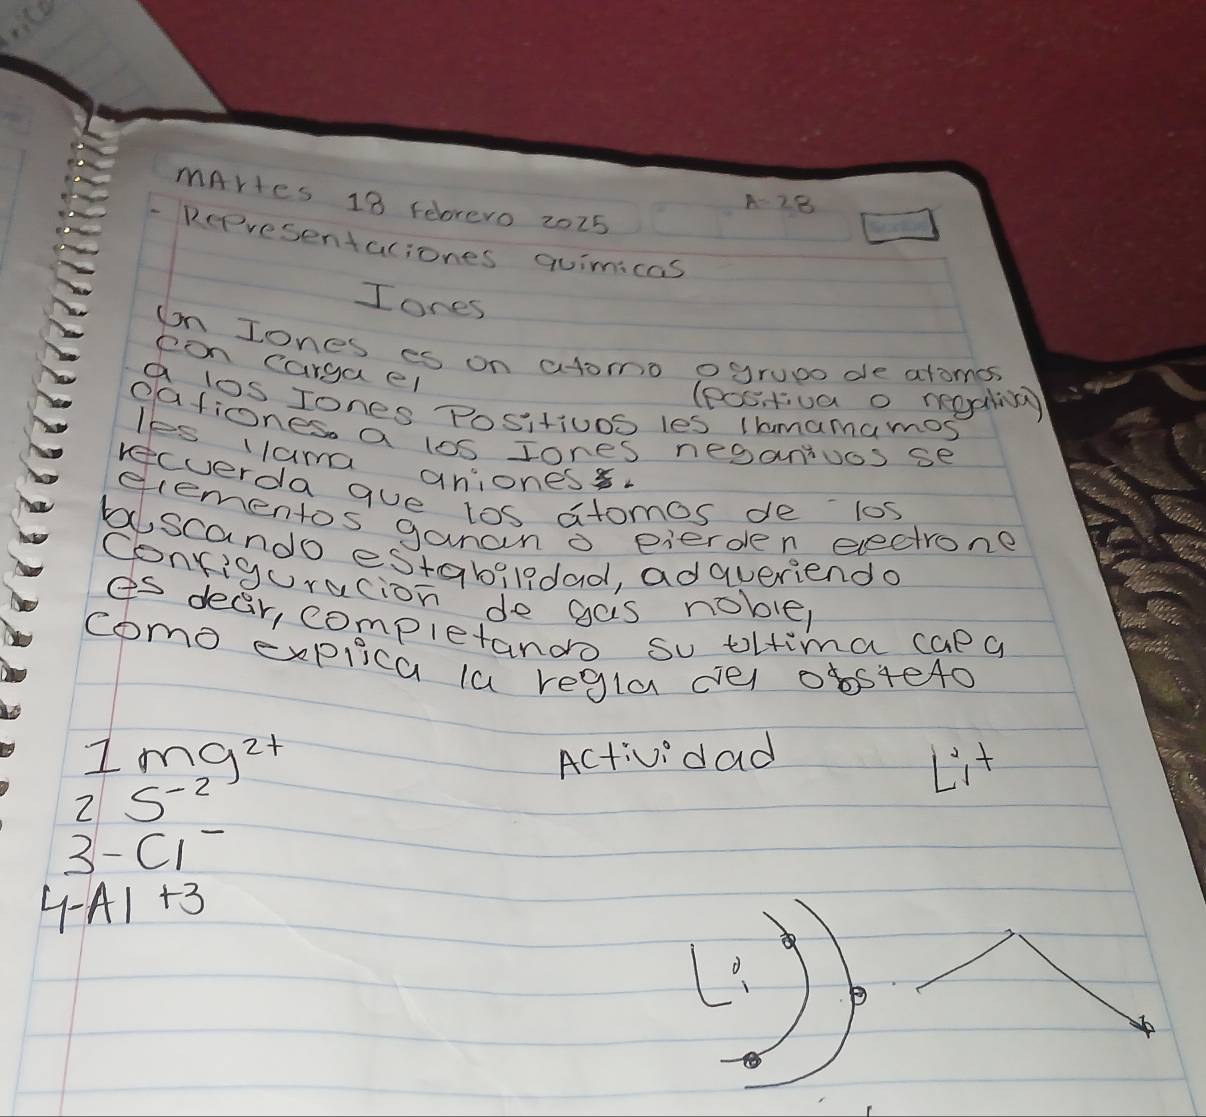 mArtes 18 febrero 2025
A-28
- Representaciones quimicas
Iones
Un Iones es un atomo o grupo de atomos
con carga el (positiva o negativa)
a los Iones Positivos les llamamos
cationes. a los Iones negantivos se
les llama aniones.
recuerda que los átomos de los
elementos ganan o pierden electrone
buscando estabilidad, adqueriendo
configuración de gas noble,
es decir, completando su ultima capa
como explica la regla del obsteto
Actividad
1 mg2+
Li+
2 S-2
3-Cl-
4-Al +3
Li